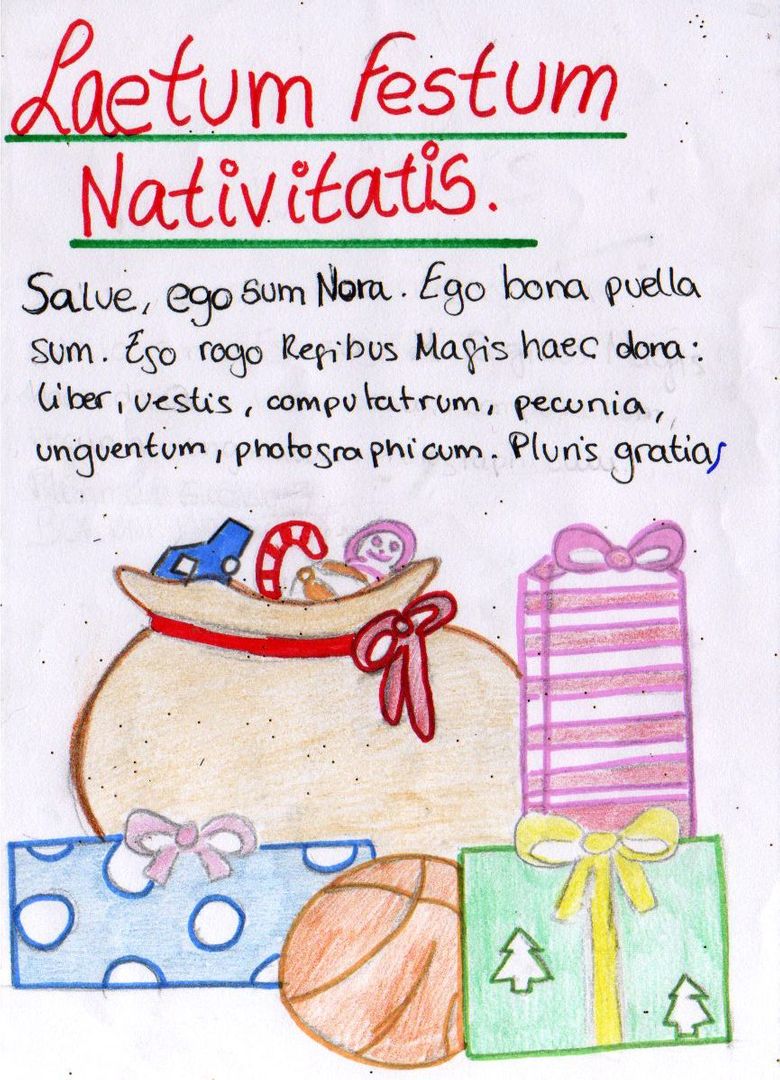 Laetum festum
Nativitatis.
Salve, ego sum Nora. Ego bona puella
sum. Ego rogo Regibus Magis haec dona:
liber, vestis, computatrum, pecunia,
unguentum, photographicum. Pluris gratias